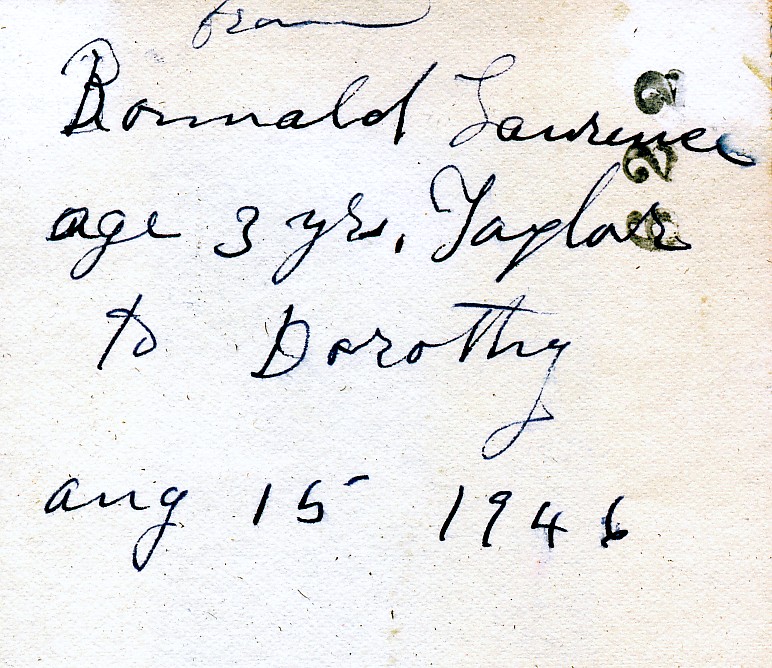 from
Ronnald Lawrence
age 3 yrs. Taylor
to Dorothy
aug 15 1946
222